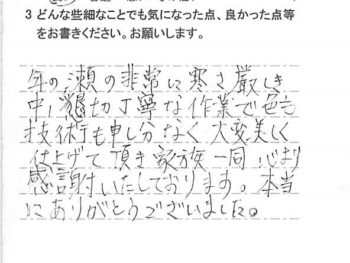 3 どんな些細なことでも気になった点、良かった点等
をお書きください。お願いします。
年の瀬の非常に寒さ厳しき
中、懇切丁寧な作業で色も
技術も申し分なく大変美しく
仕上げて頂き家族一同心より
感謝いたしております。本当
にありがとうございました。